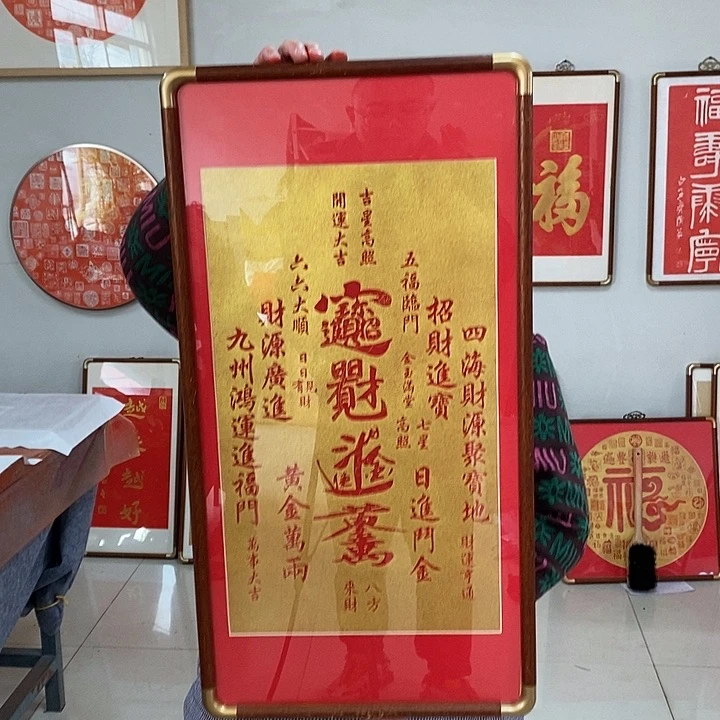 四海財源聚寶地
財運亨通
招財進寶
日進鬥金
五福臨門
金玉滿堂
七星
高照
吉星高照
開運大吉
八方
來財
六六大順
財源廣進
黃金萬兩
九州鴻運進福門
萬事大吉
福
福壽康寧
越來越好
福